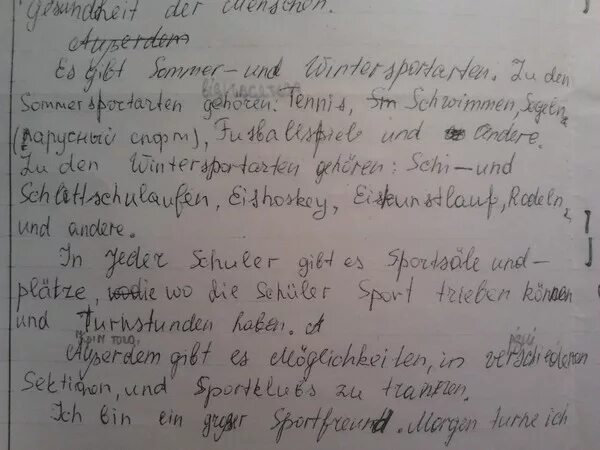 Gesundheit der Menschen.
Außerdem
Es gibt Sommer- und Wintersportarten. Zu den
Sommersportarten gehören: Tennis, Sm Schwimmen, Segeln,
(парусный спорт), Fusballspiele und andere.
Zu den Wintersportarten gehören: Schi- und
Schlittschulaufen, Eishoskey, Eiskunstlauf, Rodeln,
und andere.
In Jeder Schuler gibt es Sportsäle und-
plätze, wo die Schüler Sport trieben können
und Turnstunden haben. A
кроме того,
Außerdem gibt es Möglichkeiten, in verschiedenen
Sektionen, und Sportklubs zu tranren.
Ich bin ein großer Sportfreund. Morgen turne ich